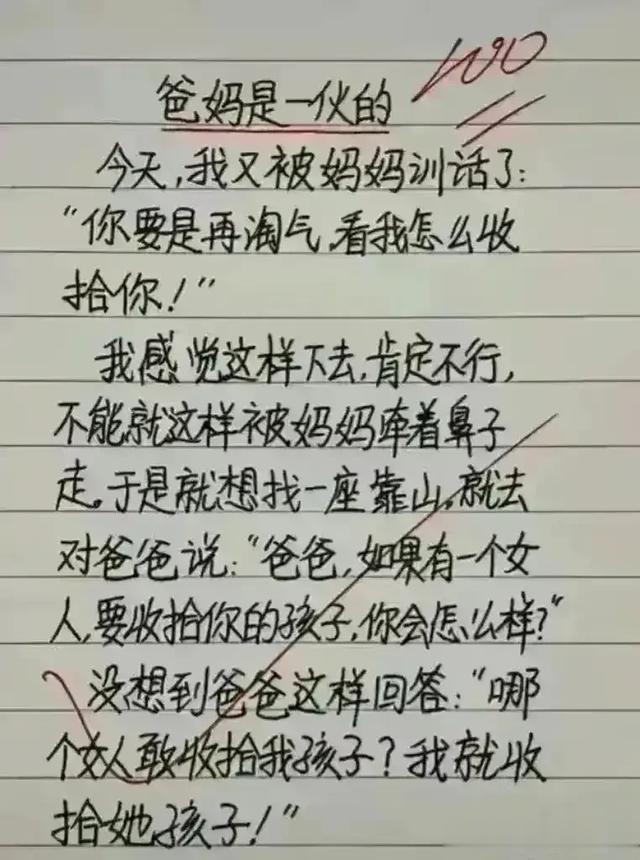 100
爸妈是一伙的
今天,我又被妈妈训话了:
“你要是再淘气,看我怎么收
拾你!”
我感觉这样下去,肯定不行,
不能就这样被妈妈牵着鼻子
走。于是就想找一座靠山,就去
对爸爸说:“爸爸,如果有一个女
人,要收拾你的孩子,你会怎么样?”
没想到爸爸这样回答:“哪
个女人敢收拾我孩子?我就收
拾她孩子!”